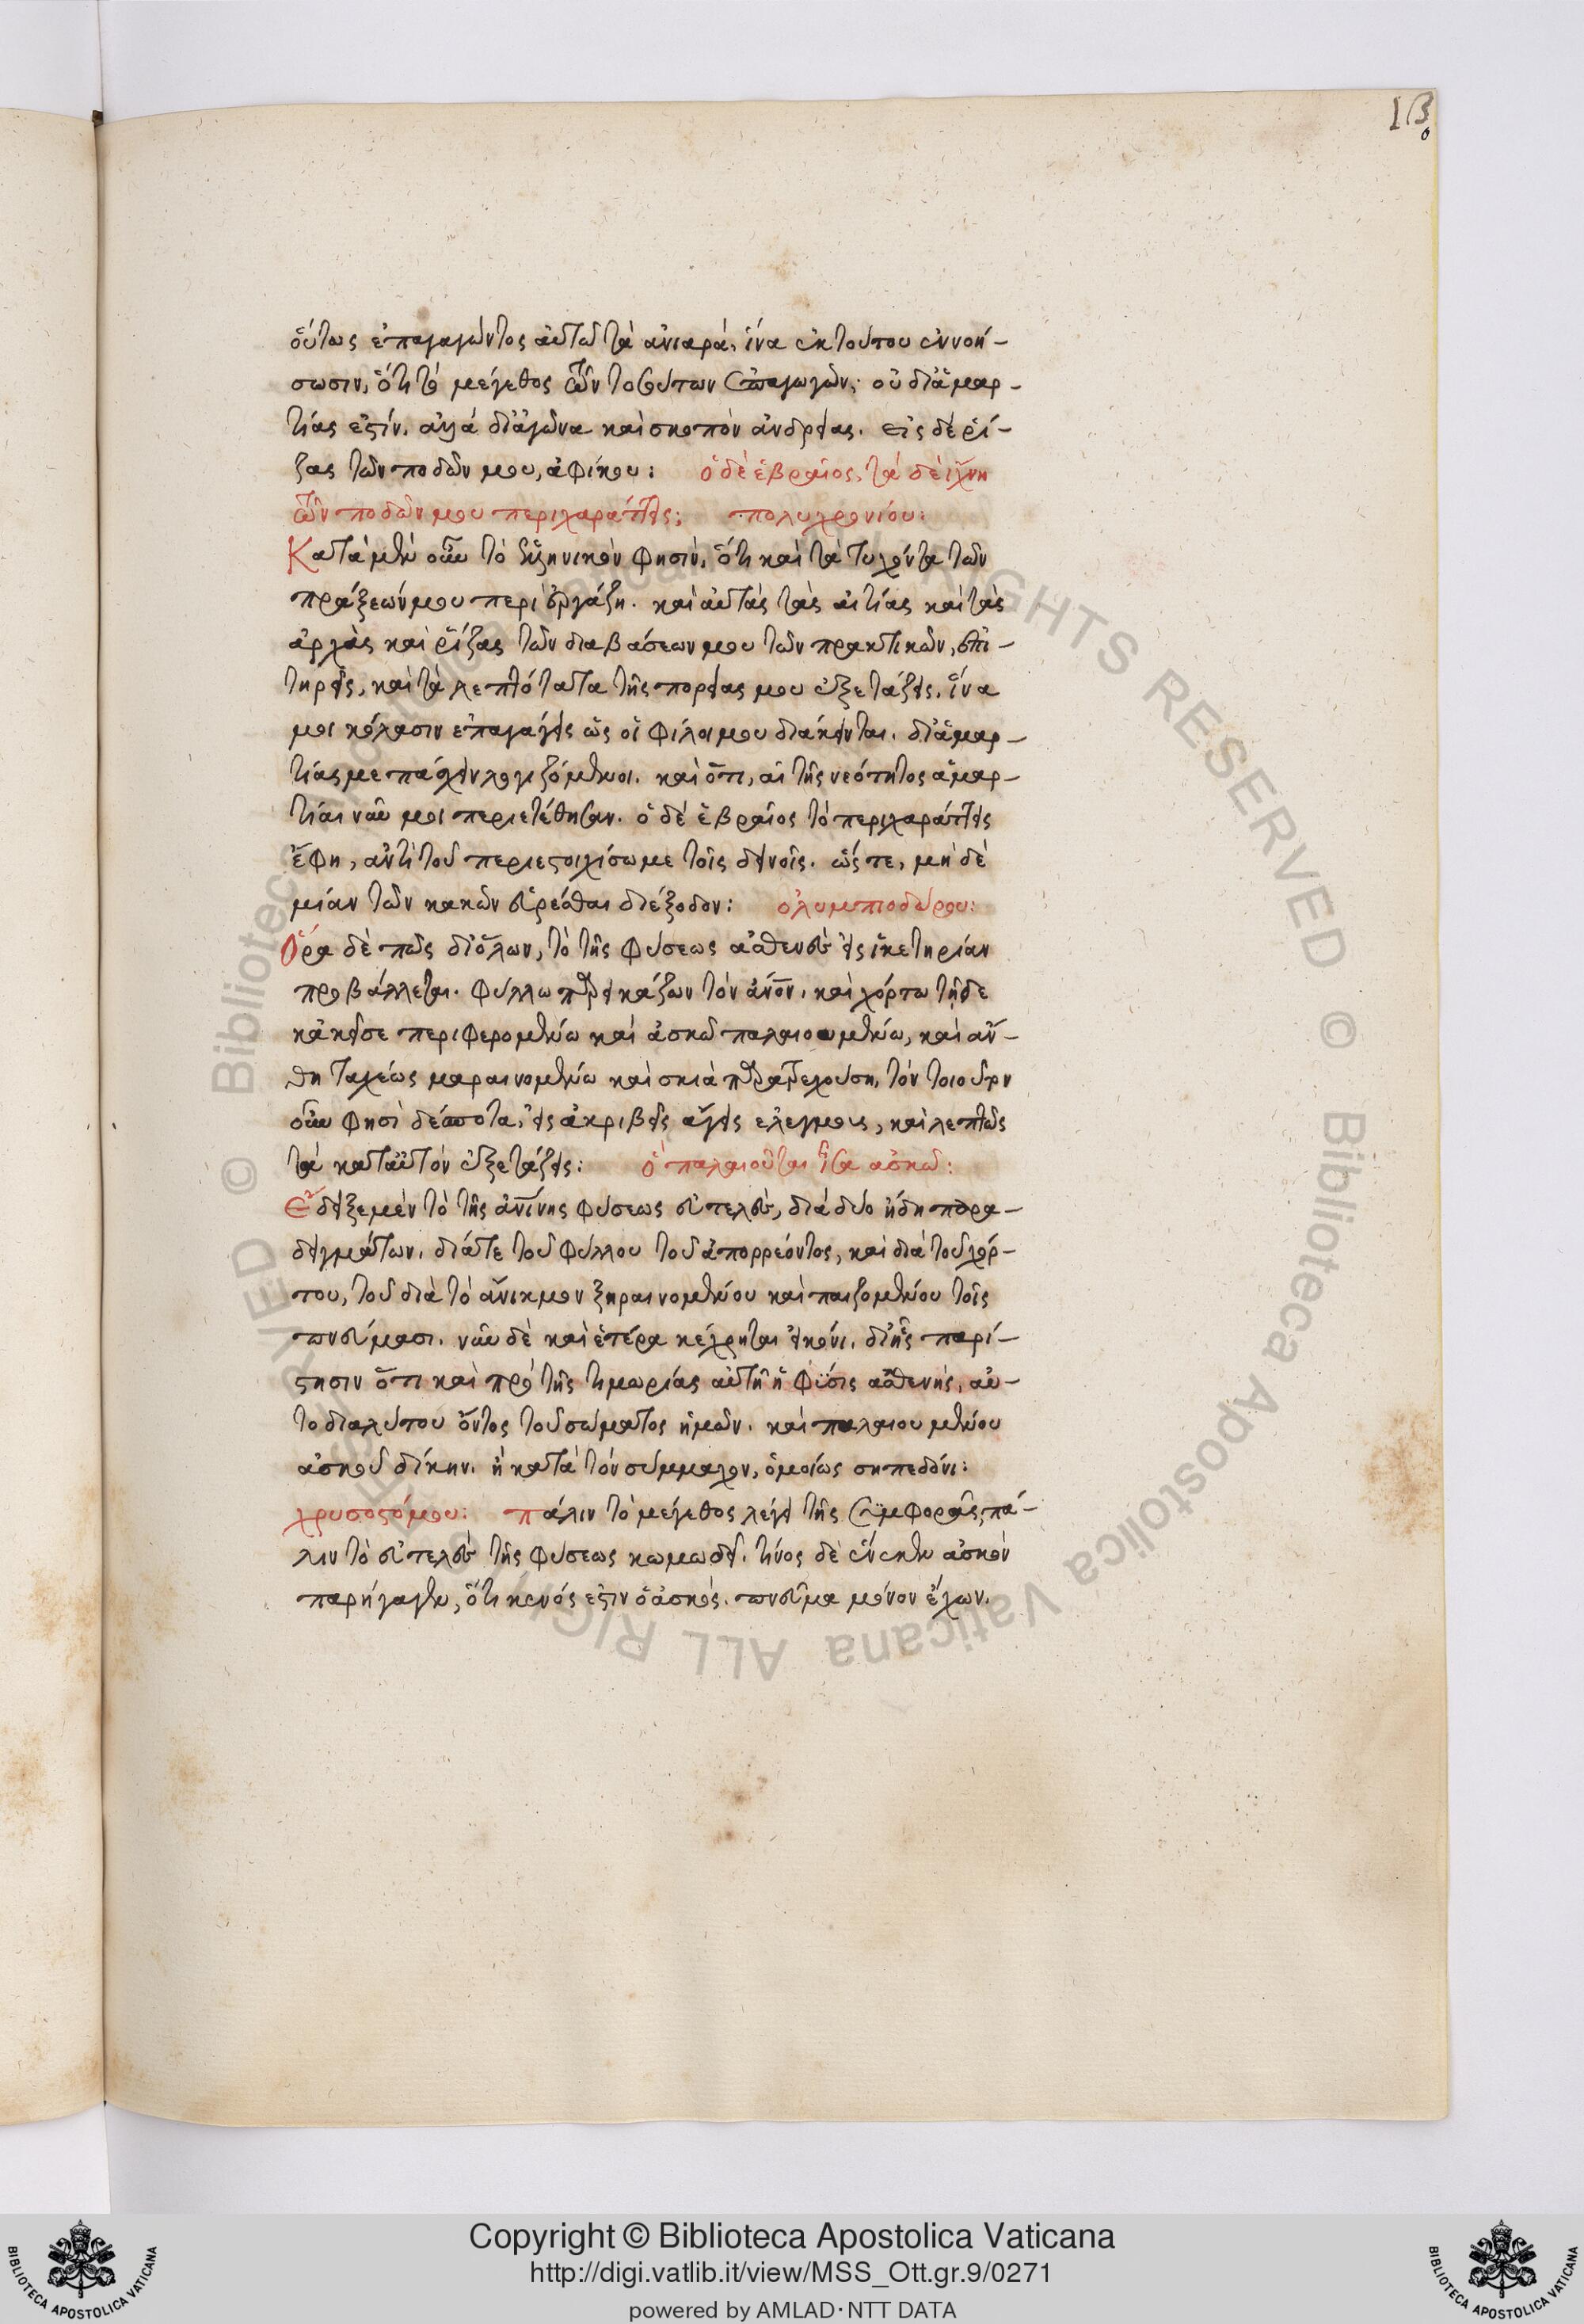 οὕτως ἐπαγαγόντος αὐτῶ τὰ ἀνιαρά, ἵνα ἐκ τούτου ἐννοή-
σωσιν, ὅτι τὸ μέγεθος τῶν τοσούτων ἐπαγωγῶν, οὐ διἁμαρ-
τίας ἐστίν. ἀλλὰ διἀγῶνα καὶ σκοπὸν ἀνδρείας. εἰς δὲ ῥί-
ζας τῶν ποδῶν μου, ἀφίκου: ὁ δὲ ἑβραῖος, τὰ δὲ ἴχνη
τῶν ποδῶν μου περιχαράττεις; πολυχρονίου:
Κατὰ μὲν οὖν τὸ ἑλληνικὸν φησὶν, ὅτι καὶ τὰ τυχόντα τῶν
πράξεών μου περιεργάζη. καὶ αὐτὰς τὰς αἰτίας καὶ τὰς
ἀρχὰς καὶ ῥίζας τῶν διαβάσεων μου τῶν πρακτικῶν, ἐπι-
τηρεῖς, καὶ τὰ λεπτότατα τῆς πορείας μου ἐξετάζεις, ἵνα
μοι κόλασιν ἐπαγάγεις ὡς οἱ φίλοι μου διάκεινται. διἁμαρ-
τίας με πάσχειν λογιζόμενοι. καὶ ὅτι, αἱ τῆς νεότητος ἁμαρ-
τίαι νῦν μοι περιετέθησαν. ὁ δὲ ἑβραῖος τὸ περιχαράττεις
ἔφη, ἀντὶ τοῦ περιεστοιχίσω με τοῖς δεινοῖς. ὥστε, μὴ δὲ
μίαν τῶν κακῶν εὑρέσθαι διέξοδον: ὀλυμπιοδώρου:
Ὅρα δὲ πῶς διὅλων, τὸ τῆς φύσεως ἀσθενὲς εἰς ἱκετηρίαν
προβάλλεται. φύλλω παρεικάζων τὸν ἄνον, καὶ χόρτω τῆδε
κἀκεῖσε περιφερομένω καὶ ἀσκῶ παλαιουμένω, καὶ ἄν-
θη ταχέως μαραινομένω καὶ σκιὰ παρατρεχούση, τὸν τοιοῦτον
οὖν φησὶ δέσποτα, εἰς ἀκριβεῖς ἄγεις ἐλέγχους, καὶ λεπτῶς
τὰ κατ αὐτὸν ἐξετάζεις: ὁ παλαιοῦται ἶσα ἀσκῶ:
Ἔδειξε μὲν τὸ τῆς ἀνίνης φύσεως εὐτελὲς, διὰ δύο ἤδη παρα-
δειγμάτων, διάτε τοῦ φύλλου τοῦ ἀπορρέοντος, καὶ διὰ τοῦ χόρ-
του, τοῦ διὰ τὸ ἄνικμον ξηραινομένου καὶ παιζομένου τοῖς
πνεύμασι. νῦν δὲ καὶ ἑτέρα κέχρηται εἰκόνι. διἧς παρί-
στησιν ὅτι καὶ πρὸ τῆς τιμωρίας αὐτὴ ἡ φύσις ἀσθενὴς, αὐ-
τοδιαλύτου ὄντος τοῦ σώματος ἡμῶν. καὶ παλαιουμένου
ἀσκοῦ δίκην. ἢ κατὰ τὸν σύμμαχον, ὁμοίως σηπεδόνι:
χρυσοστόμου: πάλιν τὸ μέγεθος λέγει τῆς συμφορᾶς, πά-
λιν τὸ εὐτελὲς τῆς φύσεως κωμωδεῖ. τίνος δὲ ἕνεκεν ἀσκὸν
παρήγαγεν, ὅτι κενός ἐστιν ὁ ἀσκὸς. πνεῦμα μόνον ἔχων.
Copyright © Biblioteca Apostolica Vaticana
http://digi.vatlib.it/view/MSS_Ott.gr.9/0271
powered by AMLAD·NTT DATA